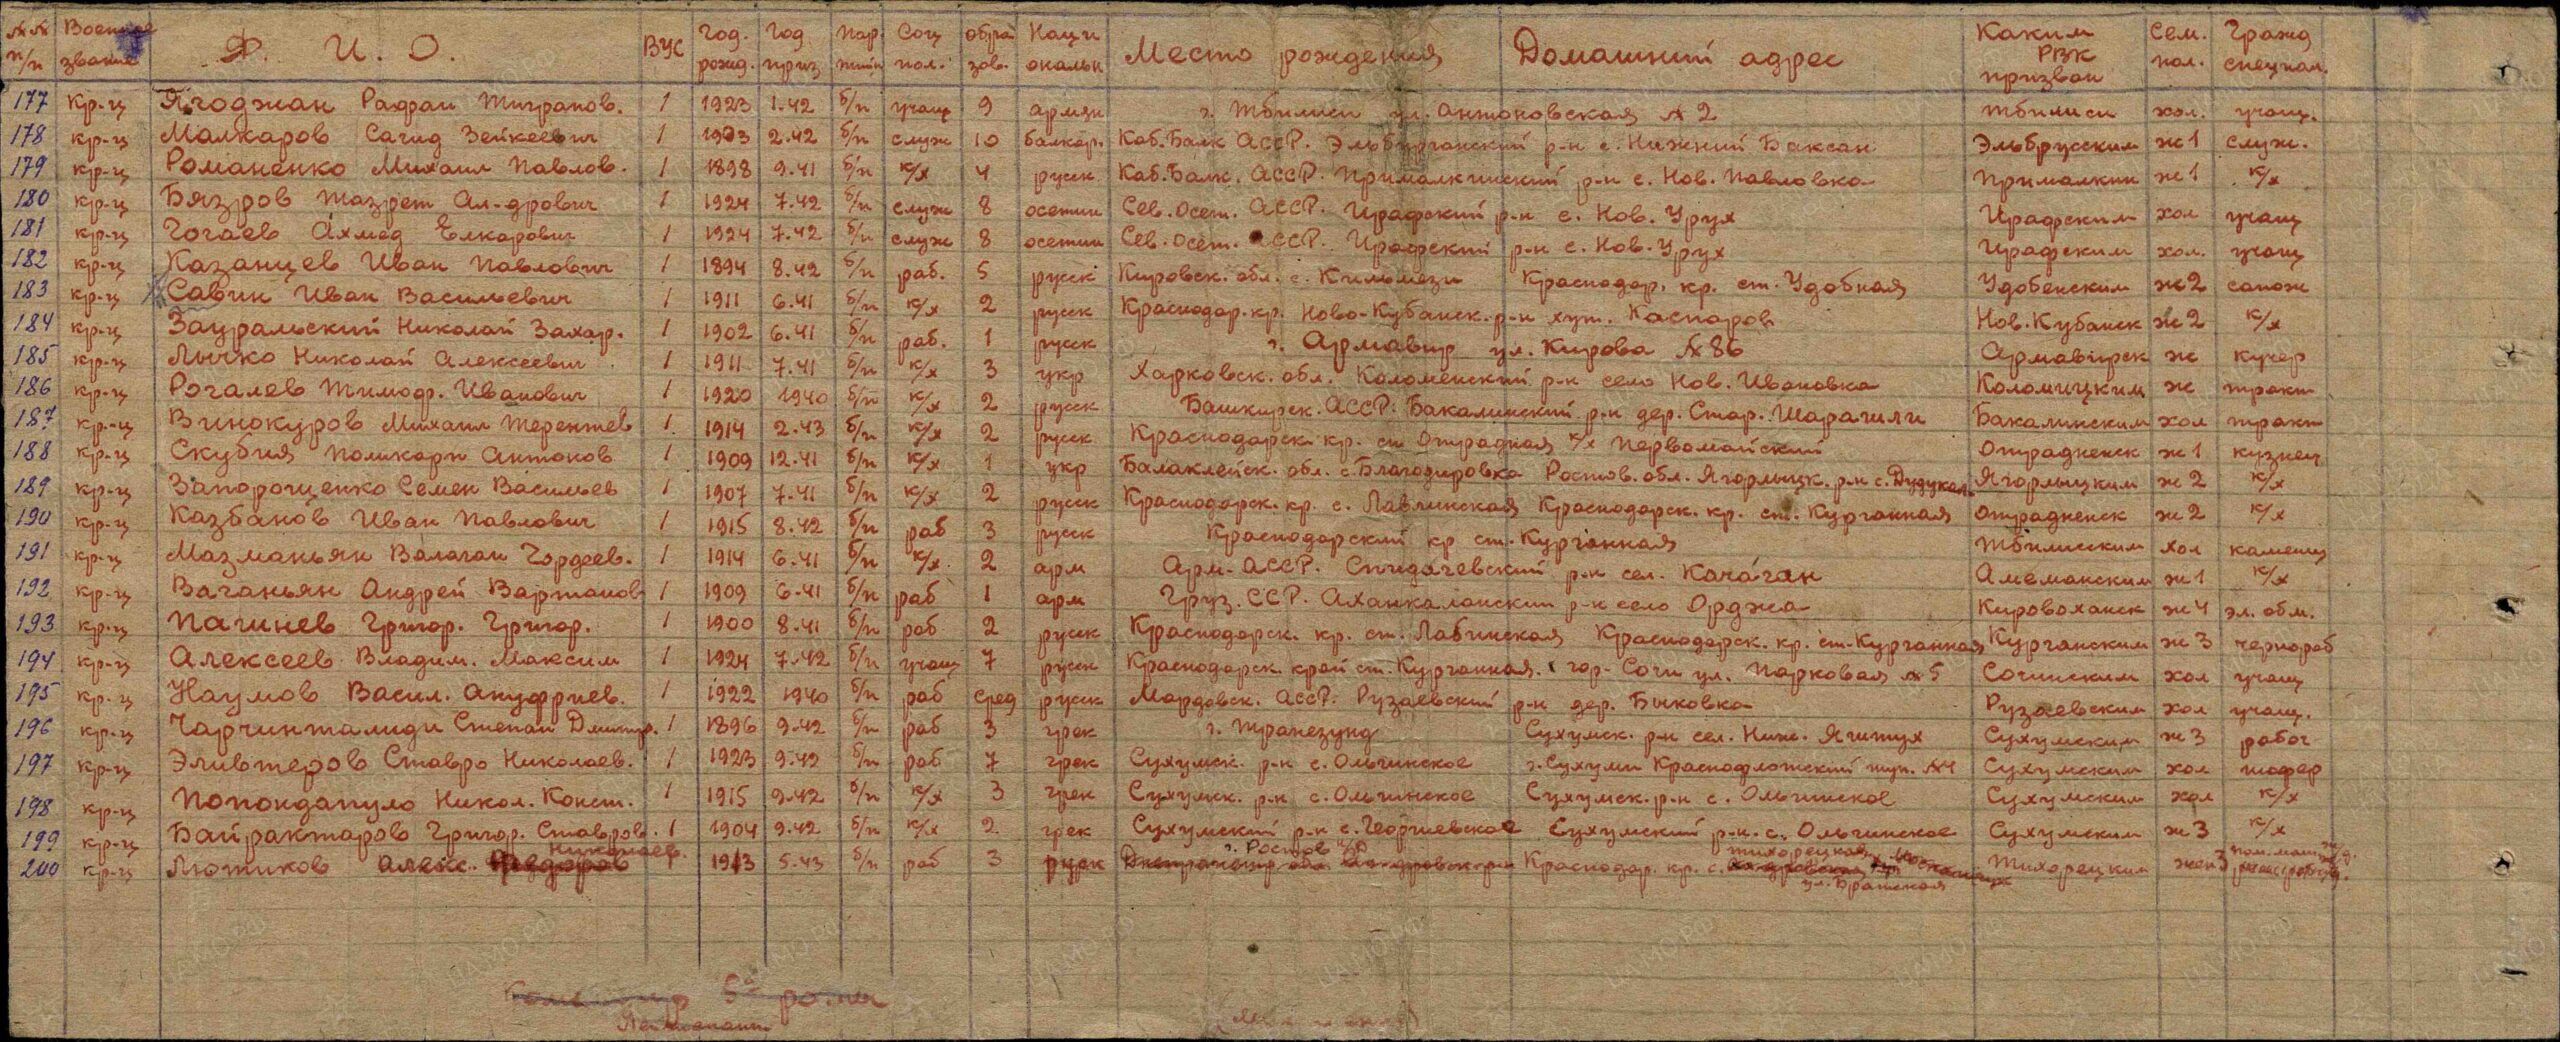 №№ п/п Военное звание Ф. И. О. ВУС Год. рожд. Год приз. пар. тийн Соц пол. образов. Националын Место рождения Домашний адрес Каким РВК призван Сем. пол. Гражд специал.
177 Кр-ц Ягоджан Рафаил Тигранов. 1 1923 1.42 б/п учащ 9 армян г. Тбилиси ул. Антоновская №2 Тбилиси хол. учащ.
178 кр-ц Малкаров Сагид Зейкеевич 1 1903 2.42 б/п служ 10 балкар. Каб. Балк АССР. Эльбурганский р-н с. Нижний Баксан Эльбрусским ж1 служ.
179 кр-ц Романенко Михаил Павлов. 1 1898 9.41 б/п к/х 4 русск Каб. Балк. АССР. Прималкинский р-н с. Нов. Павловка Прималкин ж1 к/х
180 кр-ц Бязров Тазрет Ал-дрович 1 1924 7.42 б/п служ 8 осетин Сев. Осет. АССР. Ирафский р-н с. Нов. Урух Ирафским хол учащ
181 кр-ц Гогаев Ахмед Елкарович 1 1924 7.42 б/п служ 8 осетин Сев. Осет. АССР. Ирафский р-н с. Нов. Урух Ирафским хол. учащ
182 кр-ц Казанцев Иван Павлович 1 1894 8.42 б/п раб. 5 русск Кировск. обл. с. Кильмези Краснодар. кр. ст. Удобная Удобенским ж2 сапож
183 кр-ц Савин Иван Васильевич 1 1911 6.41 б/п к/х 2 русск Краснодар. кр. Ново-Кубанск. р-н хут. Каспаров Нов. Кубанск ж2 к/х
184 кр-ц Зауральский Николай Захар. 1 1902 6.41 б/п раб. 1 русск г. Армавир ул. Кирова №86 Армавирск ж кучер
185 кр-ц Лычко Николай Алексеевич 1 1911 7.41 б/п к/х 3 укр Харковск. обл. Коломенский р-н село Нов. Ивановка Коломицким ж тракт
186 кр-ц Рогалев Тимоф. Иванович 1 1920 1940 б/п к/х 2 русск Башкирск. АССР. Бакалинский р-н дер. Стар. Шарашли Бакалинским хол тракт
187 кр-ц Винокуров Михаил Терентьев 1 1914 2.43 б/п к/х 2 русск Краснодарск. кр. ст Отрадная к/х Первомайский Отрадненск ж1 кузнец
188 кр-ц Скубия Поликарп Антонов 1 1909 12.41 б/п к/х 1 укр Балаклейск. обл. с. Благодировка Ростов. обл. Ягорлыцк. р-н с. Дудукал. Ягорлыцким ж2 к/х
189 кр-ц Запорощенко Семен Васильев 1 1907 7.41 б/п к/х 2 русск Краснодарск. кр. с. Лавлинская Краснодарск. кр. ст. Курганная Отрадненск ж2 к/х
190 кр-ц Казбанов Иван Павлович 1 1915 8.42 б/п раб 3 русск Краснодарский кр ст. Курганная Тбилисским хол каменщ
191 кр-ц Мазманьян Валаган Гордеев. 1 1914 6.41 б/п к/х. 2 арм Арм. АССР. Спидачевский р-н сел. Качаган Амеманским ж1 к/х
192 кр-ц Ваганьян Андрей Вартанов 1 1909 6.41 б/п раб 1 арм Груз. ССР. Аханкалакский р-н село Орджа Кироваханск ж4 эл. обм.
193 кр-ц Пагинев Григор. Григор. 1 1900 8.41 б/п раб 2 русск Краснодарск. кр. ст. Лабинская Краснодарск. кр. ст. Курганная Курганским ж3 чернораб
194 кр-ц Алексеев Владим. Максим 1 1924 7.42 б/п учащ 7 русск Краснодарск. край ст. Курганная. гор. Сочи ул. Парковая №5 Сочинским хол учащ
195 кр-ц Наумов Васил. Ануфриев. 1 1922 1940 б/п раб сред русск Мардовск. АССР. Рузаевский р-н дер. Быковка Рузаевским хол учащ.
196 кр-ц Чарчинталиди Степан Дмитр. 1 1896 9.42 б/п раб 3 грек г. Трапезунд Сухумск. р-н сел. Ниж. Яштух Сухумским ж3 рабоч
197 кр-ц Эливтеров Ставро Николаев. 1 1923 9.42 б/п раб 7 грек Сухумск. р-н с. Ольгинское г. Сухуми Краснофлотский туп. №4 Сухумским хол шофер
198 кр-ц Попондапуло Никол. Конст. 1 1915 9.42 б/п к/х 3 грек Сухумск. р-н с. Ольгинское Сухумск. р-н с. Ольгинское Сухумским хол к/х
199 кр-ц Байрактаров Григор. Ставров. 1 1904 9.42 б/п к/х 2 грек Сухумский р-н с. Георгиевское Сухумский р-н с. Ольгинское Сухумским ж3 к/х
Николаев. г. Ростов н/Д Тихорецкая
200 кр-ц Лютиков Алекс. Федоров 1 1913 5.43 б/п раб 3 русск Краснодар. кр. с. Тихорецким жен3
ул. Братская
Командир 5й роты
Лейтенант